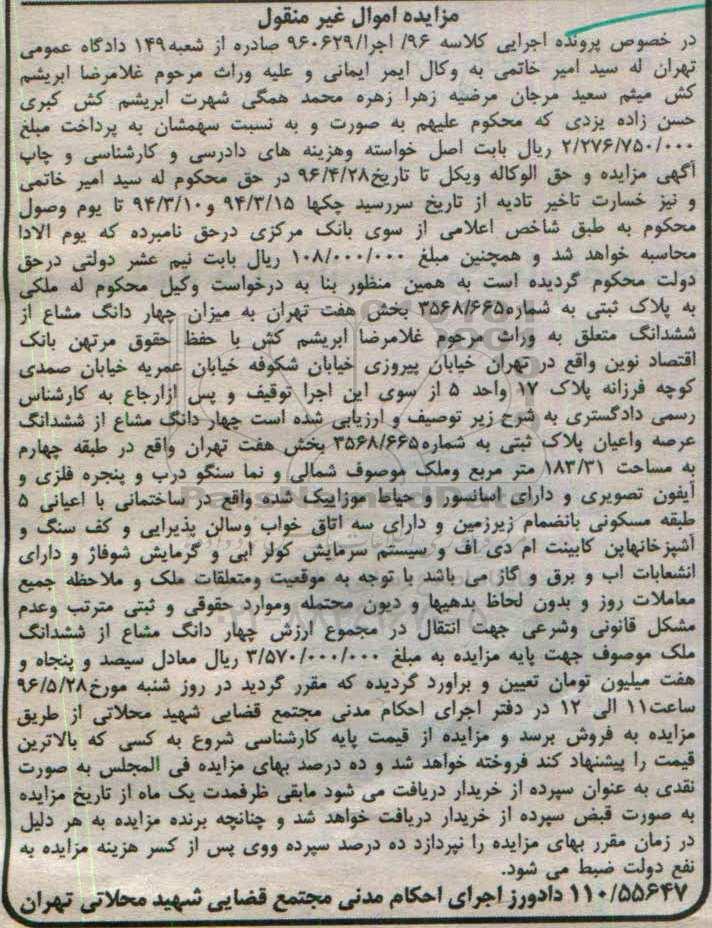 مزایده اموال غیر منقول
در خصوص پرونده اجرایی کلاسه ۹۶/ اجرا/۹۶۰۶۲۹ صادره از شعبه ۱۴۹ دادگاه عمومی
تهران له سید امیر خاتمی به وکال ایمر ایمانی و علیه وراث مرحوم غلامرضا ابریشم
کش میثم سعید مرجان مرضیه زهرا زهره محمد همگی شهرت ابریشم کش کبری
حسن زاده یزدی که محکوم علیهم به صورت و به نسبت سهمشان به پرداخت مبلغ
۲/۲۷۶/۷۵۰/۰۰۰ ریال بابت اصل خواسته وهزینه های دادرسی و کارشناسی و چاپ
آگهی مزایده و حق الوکاله ویکل تا تاریخ۹۶/۴/۲۸ در حق محکوم له سید امیر خاتمی
و نیز خسارت تاخیر تادیه از تاریخ سررسید چکها ۹۴/۳/۱۵ و۹۴/۳/۱۰ تا یوم وصول
محکوم به طبق شاخص اعلامی از سوی بانک مرکزی درحق نامبرده که یوم الادا
محاسبه خواهد شد و همچنین مبلغ ۱۰۸/۰۰۰/۰۰۰ ریال بابت نیم عشر دولتی درحق
دولت محکوم گردیده است به همین منظور بنا به درخواست وکیل محکوم له ملکی
به پلاک ثبتی به شماره۳۵۶۸/۶۶۵ بخش هفت تهران به میزان چهار دانگ مشاع از
ششدانگ متعلق به وراث مرحوم غلامرضا ابریشم کش با حفظ حقوق مرتهن بانک
اقتصاد نوین واقع در تهران خیابان پیروزی خیابان شکوفه خیابان عمریه خیابان صمدی
کوچه فرزانه پلاک ۱۷ واحد ۵ از سوی این اجرا توقیف و پس ازارجاع به کارشناس
رسمی دادگستری به شرح زیر توصیف و ارزیابی شده است چهار دانگ مشاع از ششدانگ
عرصه واعیان پلاک ثبتی به شماره۳۵۶۸/۶۶۵ بخش هفت تهران واقع در طبقه چهارم
به مساحت ۱۸۳/۳۱ متر مربع وملک موصوف شمالی و نما سنگو درب و پنجره فلزی و
آیفون تصویری و دارای اسانسور و حیاط موزاییک شده واقع در ساختمانی با اعیانی ۵
طبقه مسکونی بانضمام زیرزمین و دارای سه اتاق خواب وسالن پذیرایی و کف سنگ و
آشپزخانهاپن کابینت ام دی اف و سیستم سرمایش کولر ابی و گرمایش شوفاژ و دارای
انشعابات اب و برق و گاز می باشد با توجه به موقعیت ومتعلقات ملک و ملاحظه جمیع
معاملات روز و بدون لحاظ بدهیها و دیون محتمله وموارد حقوقی و ثبتی مترتب وعدم
مشکل قانونی وشرعی جهت انتقال در مجموع ارزش چهار دانگ مشاع از ششدانگ
ملک موصوف جهت پایه مزایده به مبلغ ۳/۵۷۰/۰۰۰/۰۰۰ ریال معادل سیصد و پنجاه و
هفت میلیون تومان تعیین و براورد گردیده که مقرر گردید در روز شنبه مورخ۹۶/۵/۲۸
ساعت۱۱ الی ۱۲ در دفتر اجرای احکام مدنی مجتمع قضایی شهید محلاتی از طریق
مزایده به فروش برسد و مزایده از قیمت پایه کارشناسی شروع به کسی که بالاترین
قیمت را پیشنهاد کند فروخته خواهد شد و ده درصد بهای مزایده فی المجلس به صورت
نقدی به عنوان سپرده از خریدار دریافت می شود مابقی ظرفمدت یک ماه از تاریخ مزایده
به صورت قبض سپرده از خریدار دریافت خواهد شد و چنانچه برنده مزایده به هر دلیل
در زمان مقرر بهای مزایده را نپردازد ده درصد سپرده ووی پس از کسر هزینه مزایده به
نفع دولت ضبط می شود.
۱۱۰/۵۵۶۴۷ دادورز اجرای احکام مدنی مجتمع قضایی شهید محلاتی تهران